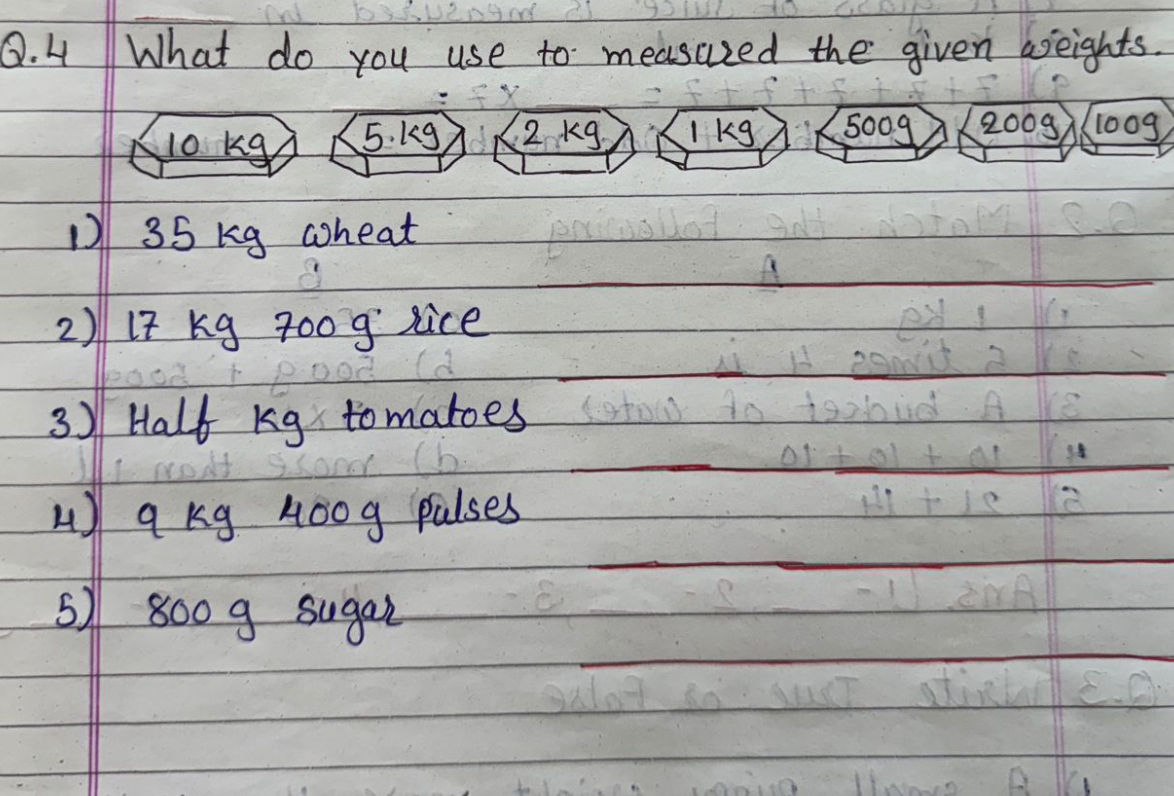 Q.4 What do you use to measured the given weights.
10 kg 5 kg 2 kg 1 kg 500g 200g 100g
1) 35 kg wheat
2) 17 kg 700 g rice
3) Half kg tomatoes
4) 9 kg 400 g pulses
5) 800 g sugar